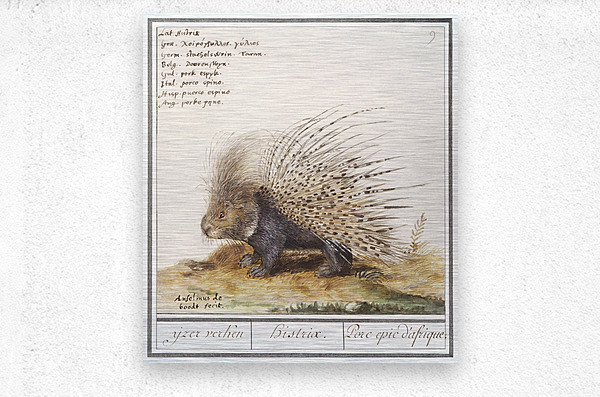 Lat Histrix
9
Gre. Χοιρόγυλλος. γύλιος
Germ. stachelswein. Taran.
Belg. Dooren
Gal. pork espyk.
Ital. porco spino.
Hisp. puerco espino
Ang. porke pque.
Anselinus de
boodt fecit.
yzer verken
histrix.
Porc-epic d'afrique.